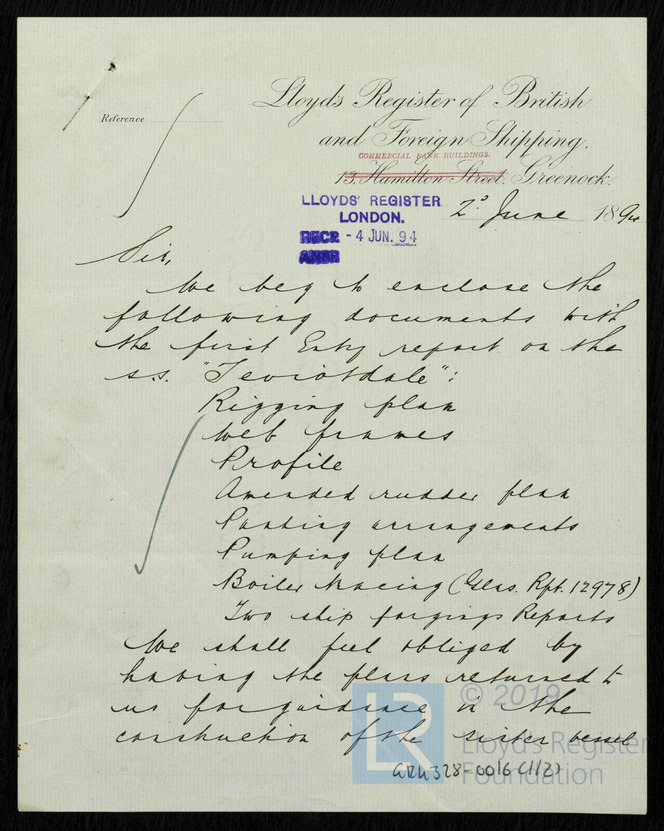 Reference
Lloyd's Register of British
and Foreign Shipping,
COMMERCIAL BANK BUILDINGS.
13, Hamilton Street, Greenock.
LLOYDS' REGISTER
LONDON.
RECD - 4 JUN. 94
2d June 1894
Sir,
We beg to enclose the
following documents with
the first Entry report on the
s.s. "Teviotdale":
Rigging plan
Web frames
Profile
Amended rudder plan
Panting arrangements
Pumping plan
Boiler tracing (Glas. Rpt. 12978)
Two ship forgings Reports
We shall feel obliged by
having the plans returned to
us for guidance in the
construction of the sister vessel
LR © 2019
Lloyd's Register
Foundation
GRK328-0016(1/2)